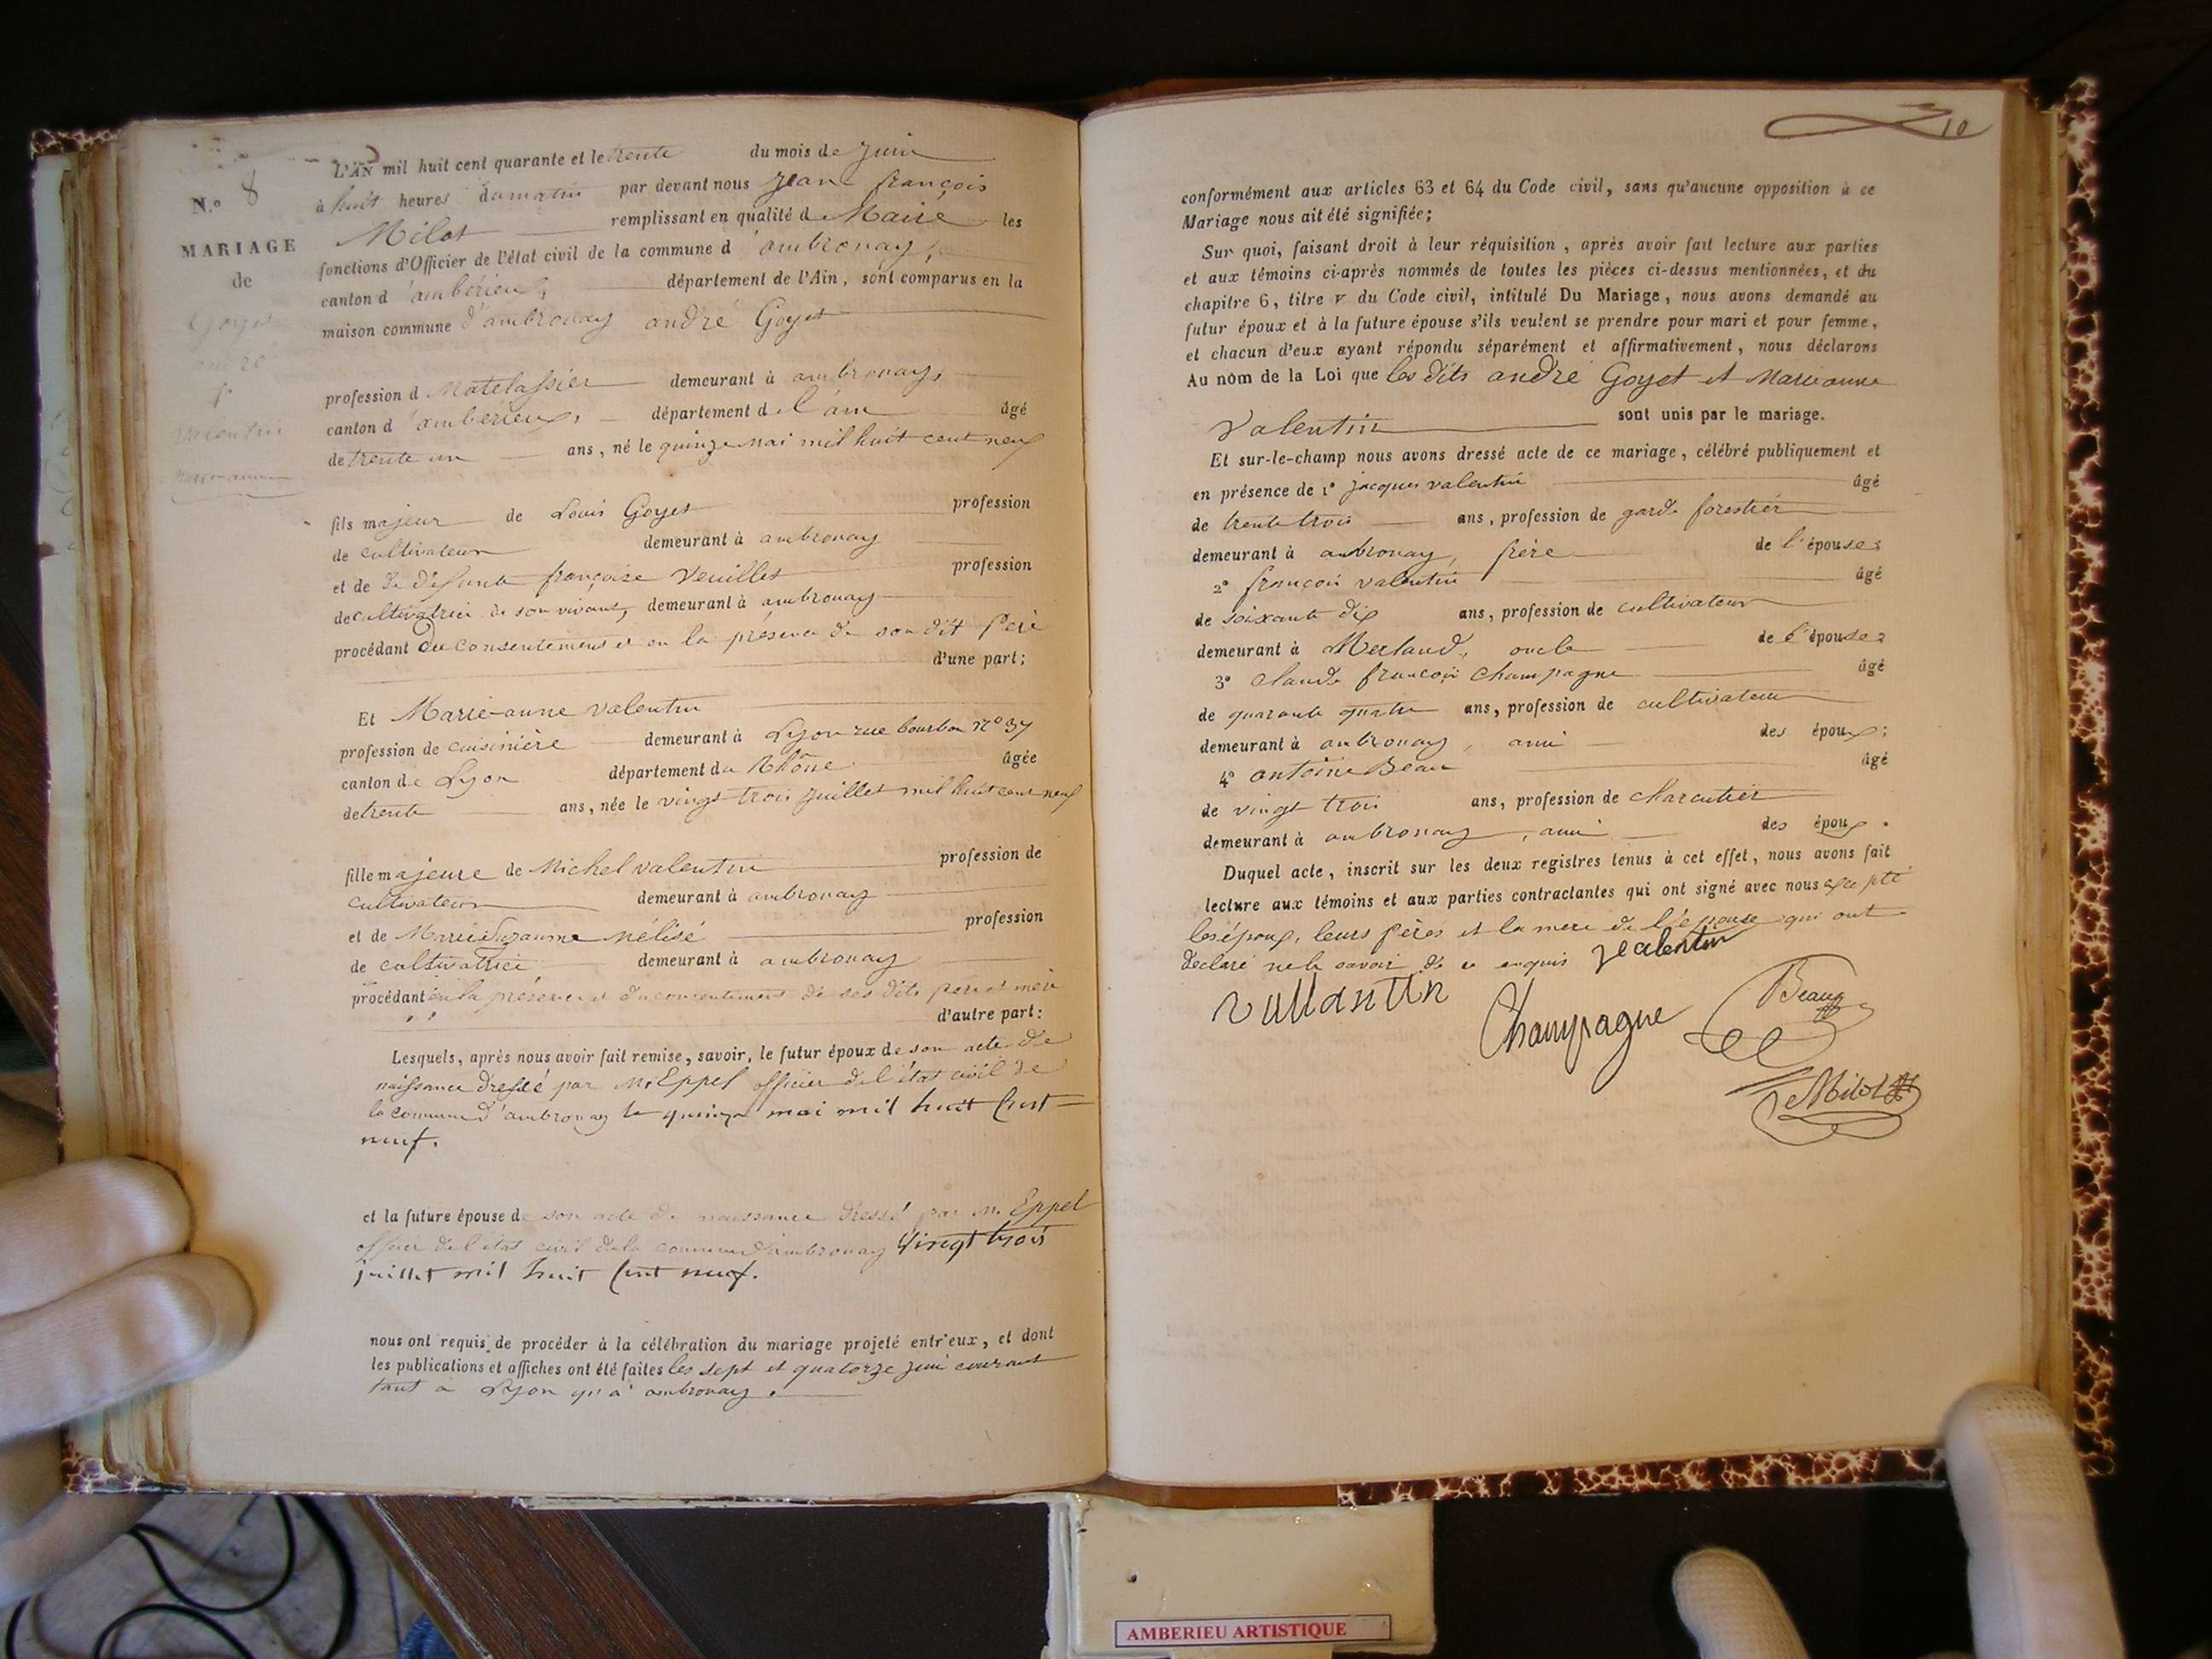 N.º 8
MARIAGE
de
Goyet
andré
&
Valentin
marie-anne
L'AN mil huit cent quarante et le trente du mois de juin
à huit heures du matin par devant nous Jean françois
Milot remplissant en qualité de Maire les
fonctions d'Officier de l'état civil de la commune d'ambronay,
canton d'ambérieux, département de l'Ain, sont comparus en la
maison commune d'ambronay andré Goyet
profession d Matelassier demeurant à ambronay,
canton d'ambérieux, département de l'ain âgé
de trente un ans, né le quinze mai mil huit cent neuf
fils majeur de Louis Goyet profession
de cultivateur demeurant à ambronay
et de défunte françoise Veuillet profession
de cultivatrice de son vivant, demeurant à ambronay
procédant du consentement et en la présence de son dit Père
d'une part;
Et Marie-anne valentin
profession de cuisinière demeurant à Lyon rue bourbon nº 37
canton de Lyon département du Rhône âgée
de trente ans, née le vingt trois juillet mil huit cent neuf
fille majeure de Michel valentin profession de
cultivateur demeurant à ambronay
et de Marie Suzanne profession
de cultivatrice demeurant à ambronay
procédant en la présence et du consentement de ses dits père et mère
d'autre part:
Lesquels, après nous avoir fait remise, savoir, le futur époux de son acte de
naissance dressé par Mr Eppel officier de l'état civil de
la commune d'ambronay le quinze mai mil huit Cent
neuf.
et la future épouse de son acte de naissance dressé par m. Eppel
officier de l'état civil de la commune d'ambronay Vingt trois
juillet mil huit Cent neuf.
nous ont requis de procéder à la célébration du mariage projeté entr'eux, et dont
les publications et affiches ont été faites les sept et quatorze juin courant
tant à Lyon qu'à ambronay.
10
conformément aux articles 63 et 64 du Code civil, sans qu'aucune opposition à ce
Mariage nous ait été signifiée;
Sur quoi, faisant droit à leur réquisition, après avoir fait lecture aux parties
et aux témoins ci-après nommés de toutes les pièces ci-dessus mentionnées, et du
chapitre 6, titre v du Code civil, intitulé Du Mariage, nous avons demandé au
futur époux et à la future épouse s'ils veulent se prendre pour mari et pour femme,
et chacun d'eux ayant répondu séparément et affirmativement, nous déclarons
Au nom de la Loi que les dits andré Goyet et Marie-anne
Valentin sont unis par le mariage.
Et sur-le-champ nous avons dressé acte de ce mariage, célébré publiquement et
en présence de 1º jacques valentin âgé
de trente trois ans, profession de garde forestier
demeurant à ambronay, frère de l'épouse;
2º françois valentin âgé
de soixante dix ans, profession de cultivateur
demeurant à Merland, oncle de l'épouse;
3º Claude françois Champagne âgé
de quarante quatre ans, profession de cultivateur
demeurant à ambronay, ami des époux;
4º antoine Beau âgé
de vingt trois ans, profession de charcutier
demeurant à ambronay, ami des époux.
Duquel acte, inscrit sur les deux registres tenus à cet effet, nous avons fait
lecture aux témoins et aux parties contractantes qui ont signé avec nous excepté
les époux, leurs pères et la mère de l'épouse qui ont
déclaré ne le savoir de ce enquis Valentin
vallantin Champagne Beau
Milot
AMBERIEU ARTISTIQUE